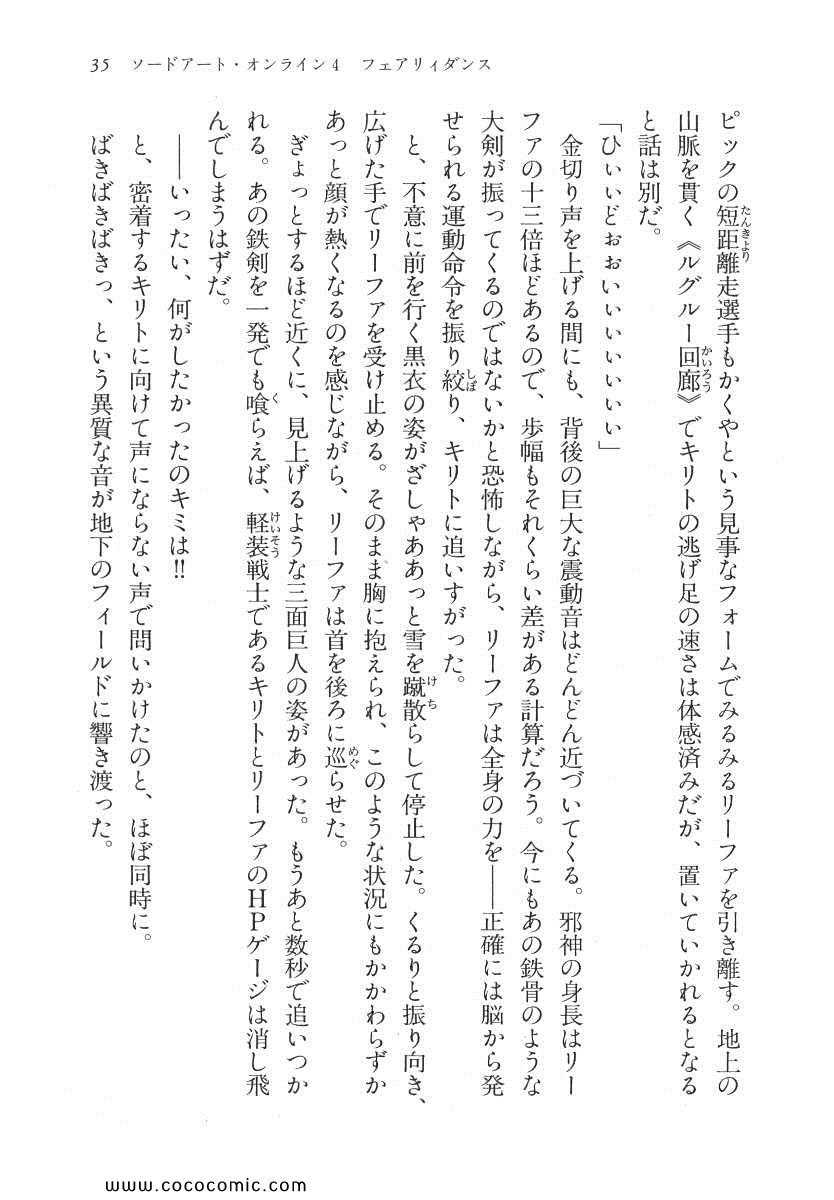 35　ソードアート・オンライン4　フェアリィダンス
ピックの短距離走選手もかくやという見事なフォームでみるみるリーファを引き離す。地上の
山脈を貫く《ルグルー回廊》でキリトの逃げ足の速さは体感済みだが、置いていかれるとなる
と話は別だ。
「ひぃぃどぉぉいぃぃぃぃぃぃ」
金切り声を上げる間にも、背後の巨大な震動音はどんどん近づいてくる。邪神の身長はリー
ファの十三倍ほどあるので、歩幅もそれくらい差がある計算だろう。今にもあの鉄骨のような
大剣が振ってくるのではないかと恐怖しながら、リーファは全身の力を――正確には脳から発
せられる運動命令を振り絞り、キリトに追いすがった。
と、不意に前を行く黒衣の姿がざしゃああっと雪を蹴散らして停止した。くるりと振り向き、
広げた手でリーファを受け止める。そのまま胸に抱えられ、このような状況にもかかわらずか
あっと顔が熱くなるのを感じながら、リーファは首を後ろに巡らせた。
ぎょっとするほど近くに、見上げるような三面巨人の姿があった。もうあと数秒で追いつか
れる。あの鉄剣を一発でも喰らえば、軽装戦士であるキリトとリーファのＨＰゲージは消し飛
んでしまうはずだ。
――いったい、何がしたかったのキミは!!
と、密着するキリトに向けて声にならない声で問いかけたのと、ほぼ同時に。
ばきばきばきっ、という異質な音が地下のフィールドに響き渡った。
www.cococomic.com